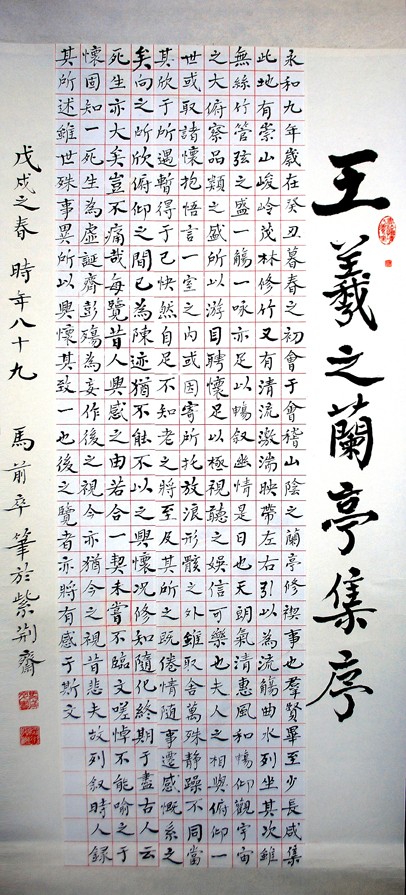 王羲之蘭亭集序
永和九年歲在癸丑暮春之初會于會稽山陰之蘭亭修禊事也羣賢畢至少長咸集
此地有崇山峻嶺茂林修竹又有清流激湍映帶左右引以為流觴曲水列坐其次雖
無絲竹管弦之盛一觴一咏亦足以暢叙幽情是日也天朗氣清惠風和暢仰觀宇宙
之大俯察品類之盛所以游目騁懷足以極視聽之娛信可樂也夫人之相與俯仰一
世或取諸懷抱悟言一室之內或因寄所托放浪形骸之外雖取舍萬殊静躁不同當
其欣于所遇暫得于己快然自足不知老之將至及其所之既倦情隨事遷感慨系之
矣向之所欣俯仰之間已為陳迹猶不能不以之興懷况修短隨化終期于盡古人云
死生亦大矣豈不痛哉每覽昔人興感之由若合一契未嘗不臨文嗟悼不能喻之于
懷固知一死生為虛誕齊彭殤為妄作後之視今亦猶今之視昔悲夫故列叙時人錄
其所述雖世殊事異所以興懷其致一也後之覽者亦將有感于斯文
戊戌之春 時年八十九 馬前卒筆於紫荆齋